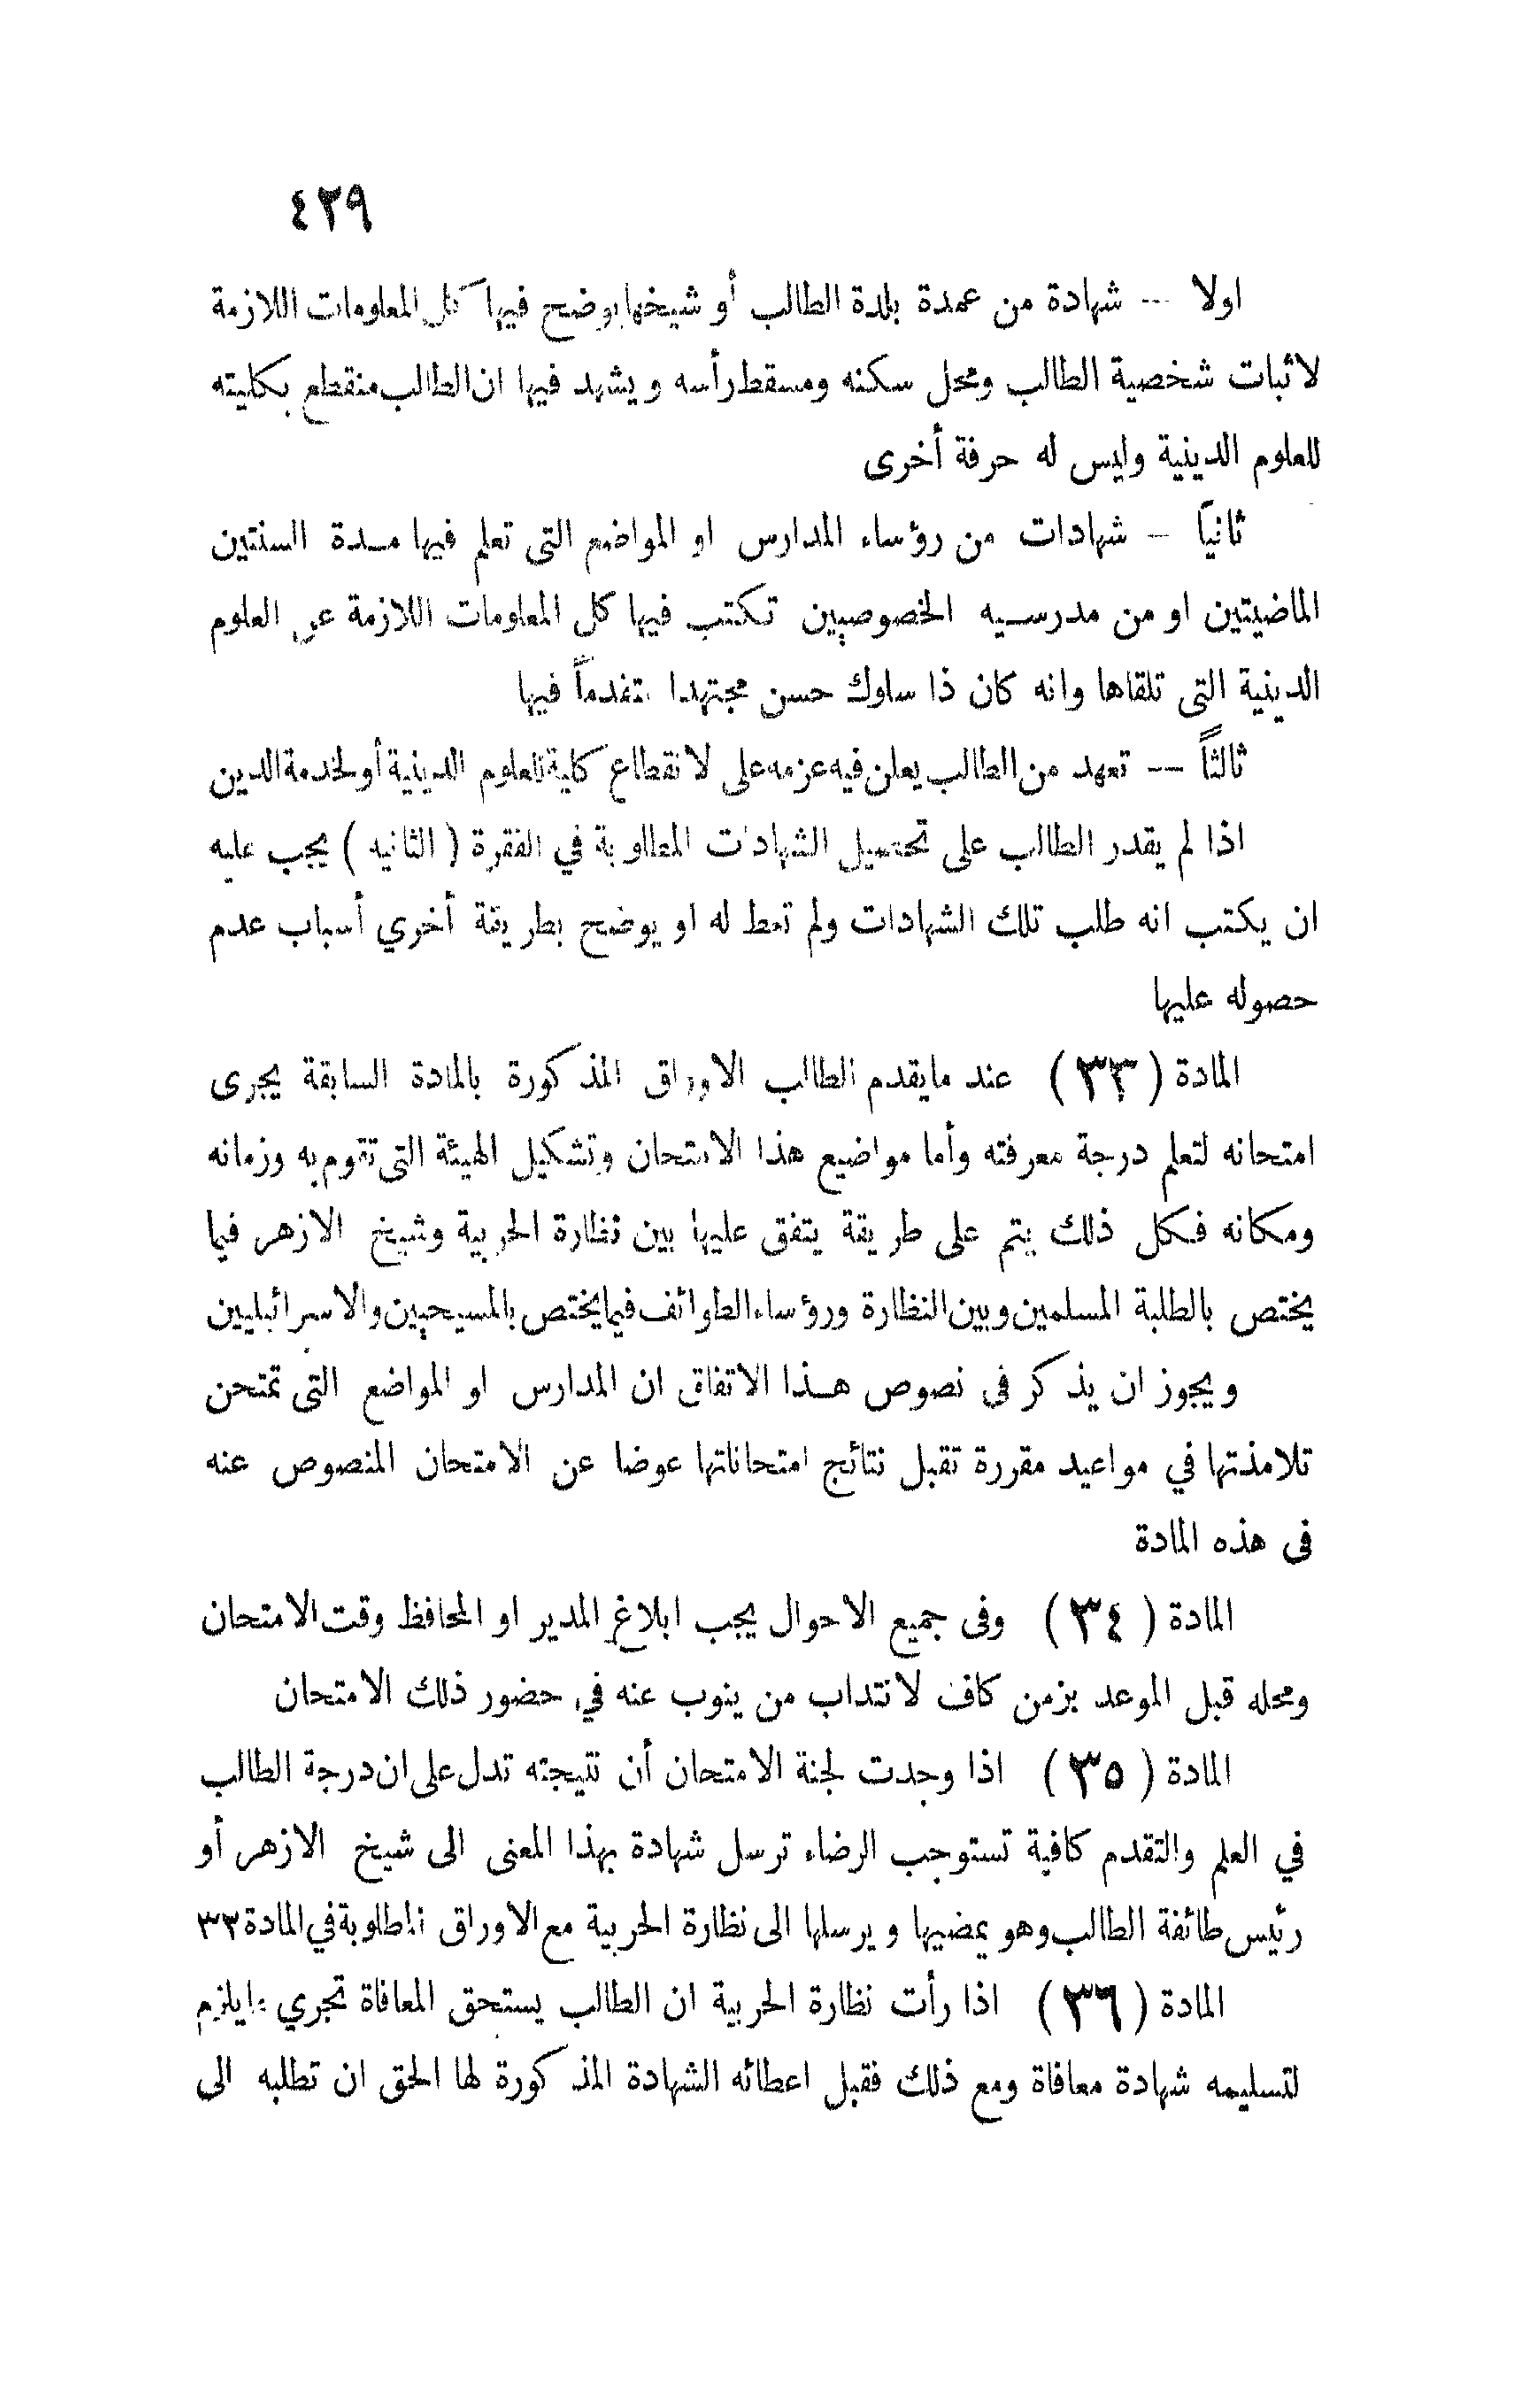 ٤٢٩
اولا -- شهادة من عمدة بلدة الطالب أو شيخها يوضح فيها كل المعلومات اللازمة
لاثبات شخصية الطالب ومحل سكنه ومسقط رأسه ويشهد فيها ان الطالب منقطع بكليته
للعلوم الدينية وليس له حرفة أخرى
ثانياً - شهادات من رؤساء المدارس او المواضع التى تعلم فيها مدة السنتين
الماضيتين او من مدرسيه الخصوصيين تكتب فيها كل المعلومات اللازمة عن العلوم
الدينية التى تلقاها وانه كان ذا سلوك حسن مجتهدا متقدماً فيها
ثالثاً -- تعهد من الطالب يعلن فيه عزمه على لانقطاع كلية للعلوم الدينية أو لخدمة الدين
اذا لم يقدر الطالب على تحصيل الشهادات المطلوبة في الفقرة ( الثانيه ) يجب عليه
ان يكتب انه طلب تلك الشهادات ولم تعط له او يوضح بطريقة أخري أسباب عدم
حصوله عليها
المادة ( ٣٣ ) عند مايقدم الطالب الاوراق المذكورة بالمادة السابقة يجرى
امتحانه لتعلم درجة معرفته وأما مواضيع هذا الامتحان وتشكيل الهيئة التى تقوم به وزمانه
ومكانه فكل ذلك يتم على طريقة يتفق عليها بين نظارة الحربية وشيخ الازهر فيما
يختص بالطلبة المسلمين وبين النظارة ورؤساء الطوائف فيما يختص بالمسيحيين والاسرائيليين
ويجوز ان يذكر فى نصوص هذا الاتفاق ان المدارس او المواضع التى تمتحن
تلامذتها في مواعيد مقررة تقبل نتائج امتحاناتها عوضا عن الامتحان المنصوص عنه
فى هذه المادة
المادة ( ٣٤ ) وفى جميع الاحوال يجب ابلاغ المدير او المحافظ وقت الامتحان
ومحله قبل الموعد بزمن كاف لانتداب من ينوب عنه في حضور ذلك الامتحان
المادة ( ٣٥ ) اذا وجدت لجنة الامتحان أن نتيجته تدل على ان درجة الطالب
في العلم والتقدم كافية تستوجب الرضاء ترسل شهادة بهذا المعنى الى شيخ الازهر أو
رئيس طائفة الطالب وهو يمضيها ويرسلها الى نظارة الحربية مع الاوراق المطلوبة في المادة ٣٢
المادة ( ٣٦ ) اذا رأت نظارة الحربية ان الطالب يستحق المعافاة تجري مايلزم
لتسليمه شهادة معافاة ومع ذلك فقبل اعطائه الشهادة المذكورة لها الحق ان تطلبه الى